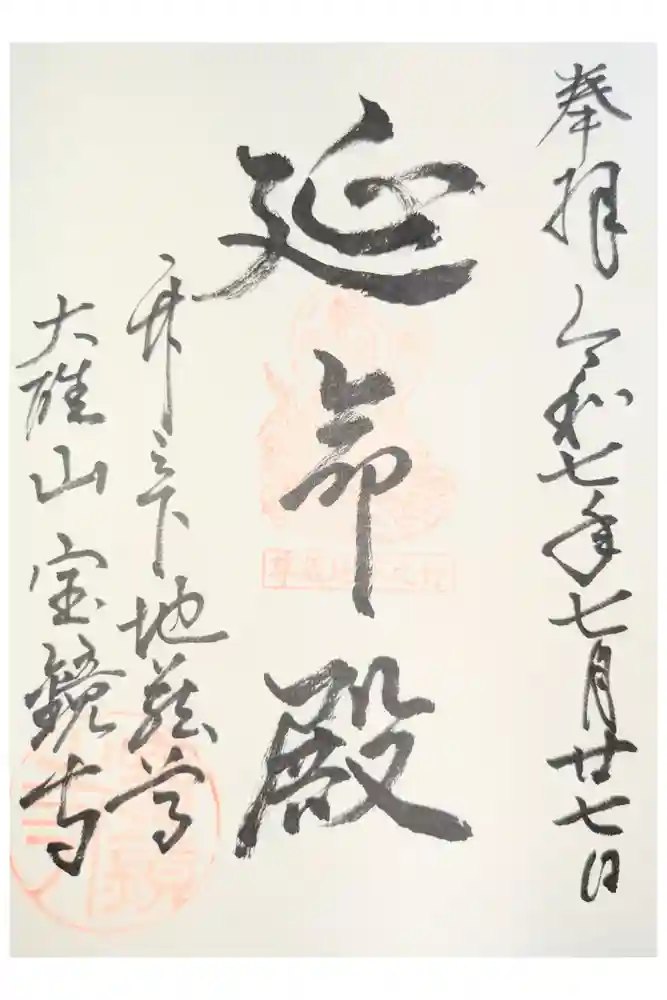 奉拝 令和七年七月廿七日
延命殿
地蔵尊
大雄山宝鏡寺